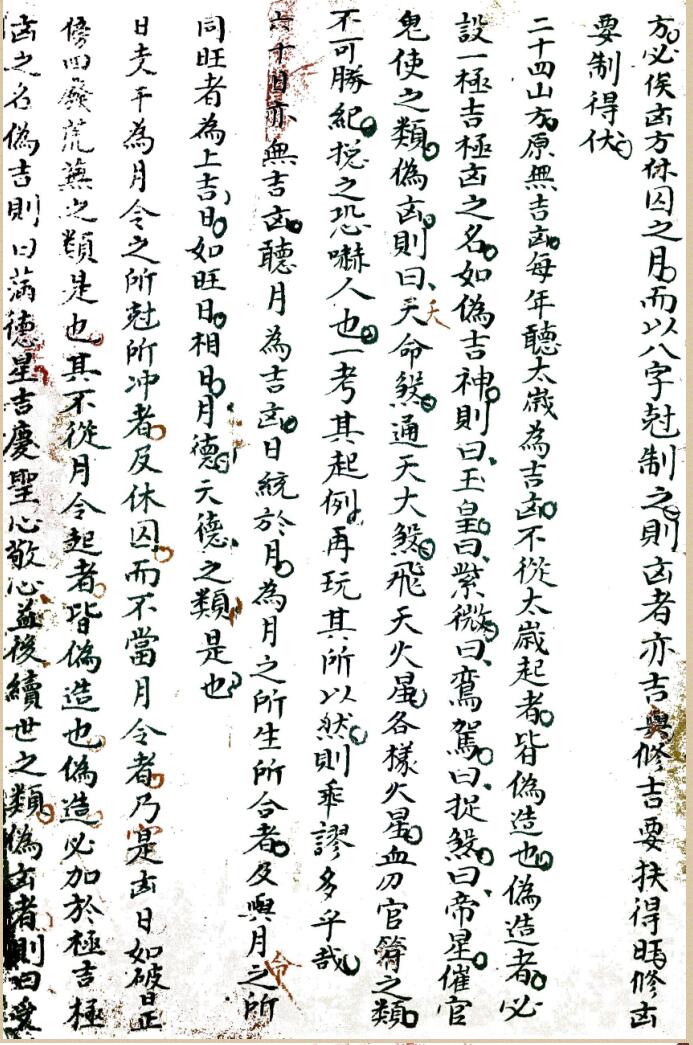 方必俟凶方休囚之月而以八字尅制之則凶者亦吉與修吉要扶得旺修凶
要制得伏
二十四山方原無吉凶每年聽太歲為吉凶不從太歲起者皆偽造也偽造者必
設一極吉極凶之名如偽吉神則曰玉皇曰紫微曰鸞駕曰捉煞曰帝星催官
鬼使之類偽凶則曰天命煞通天大煞飛天火星各樣火星血刃官符之類
天
不可勝紀揔之恐嚇人也一考其起例再玩其所以然則乖謬多乎哉
六十日亦無吉凶聽月為吉凶日統於月為月之所生所合者及與月之所
令
同旺者為上吉日如旺日相日月德天德之類是也
日支干為月令之所尅所冲者及休囚而不當月令者乃是凶日如破日正
傍四廢荒蕪之類是也其不從月令起者皆偽造也偽造必加於極吉極
凶之名偽吉則曰滿德星吉慶聖心敬心益後續世之類偽凶者則曰受